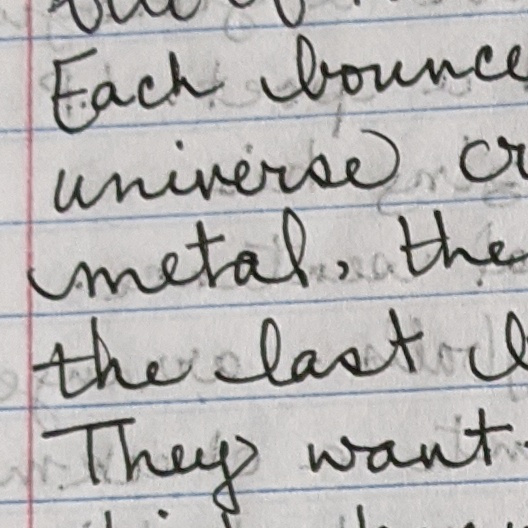 Each bounce
universe
metal, the
the last
They want